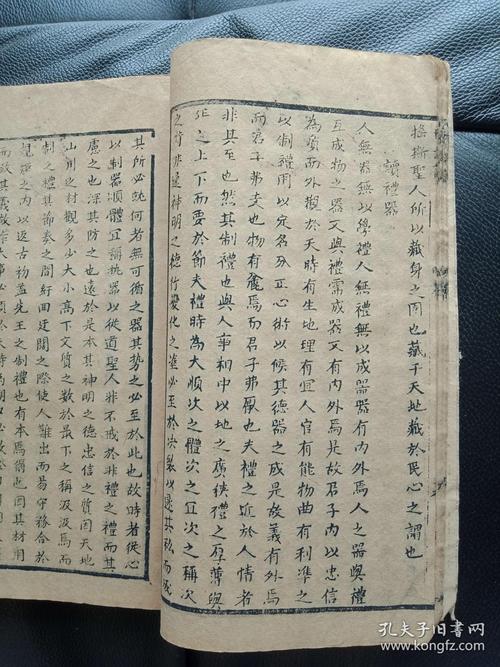 搖撕聖人所以藏身之固也藏于天地藏於民心之謂也
讀禮器
人無器無以學禮人無禮無以成器器有內外焉人之器與禮
互成物之器又與禮需成器又有內外焉是故君子內以忠信
為質而外觀於天時有生地理有宜人官有能物曲有利準之
以制禮用以定名分正心術以候其德器之成是故義有外焉
而君子弗爻也物有麄焉而君子弗厭也夫禮之近於人情者
非其至也然其制禮也與人事相中以地之廣狹禮之厚薄與
年之上下而要於節夫禮時為大順次之體次之宜次之稱次
之苟非達神明之德行變化之
其所必既何者無可衡之器其勢之必至於此也故時者從心
以制器順體宜稱執器以從道聖人非不戒於非禮之禮而其
慮之也深其防之也遠於是本其神明之德忠信之質因天地
山川之材觀多少大小高下文質之數於最下之稱汲汲焉而
制之禮其節奏之間紆回迂闊之際使人難出而易守務合於
規矩之內以返古初盖先王之制禮也有本焉
孔夫子旧书网
www.kongfz.com